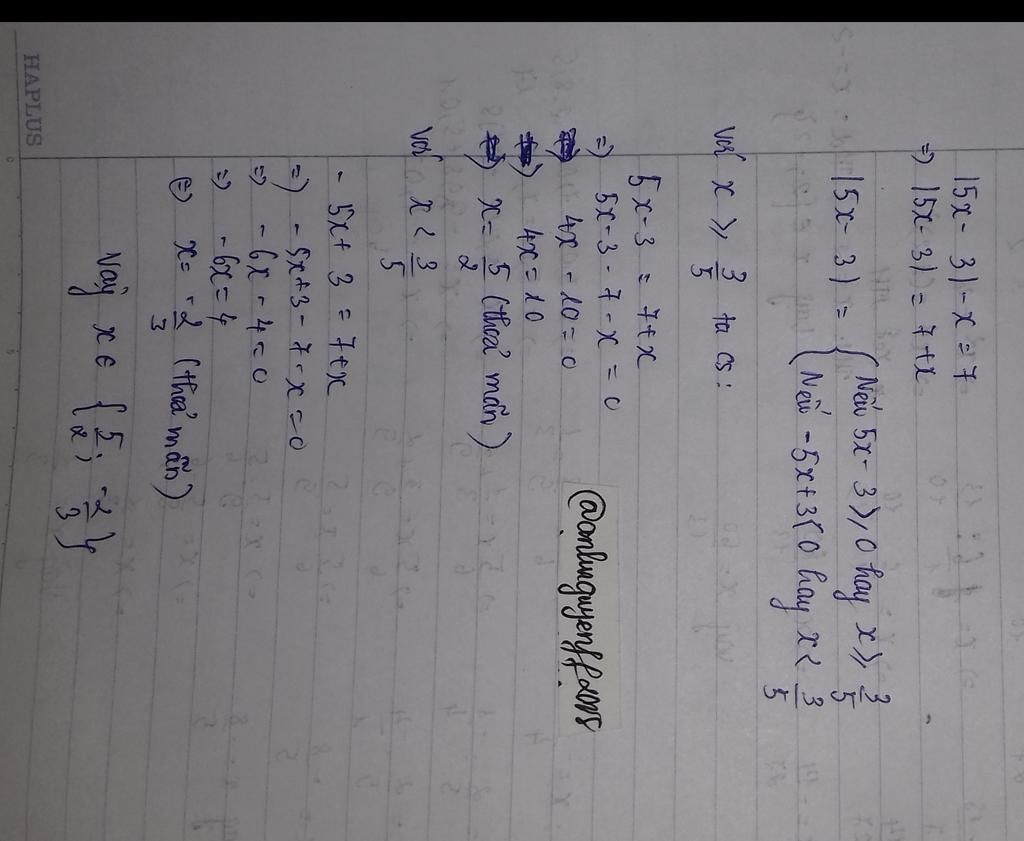 |5x - 3| - x = 7
=> |5x - 3| = 7 + x
|5x - 3| = { Nếu 5x - 3 ⩾ 0 hay x ⩾ 3/5
{ Nếu -5x + 3 < 0 hay x < 3/5
Với x ⩾ 3/5 ta có:
5x - 3 = 7 + x
=> 5x - 3 - 7 - x = 0
4x - 10 = 0
4x = 10
x = 5/2 (thoả mãn)
Với x < 3/5
- 5x + 3 = 7 + x
=> - 5x + 3 - 7 - x = 0
=> - 6x - 4 = 0
=> - 6x = 4
<=> x = -2/3 (thoả mãn)
Vậy x ∈ { 5/2 ; -2/3 }
HAPLUS